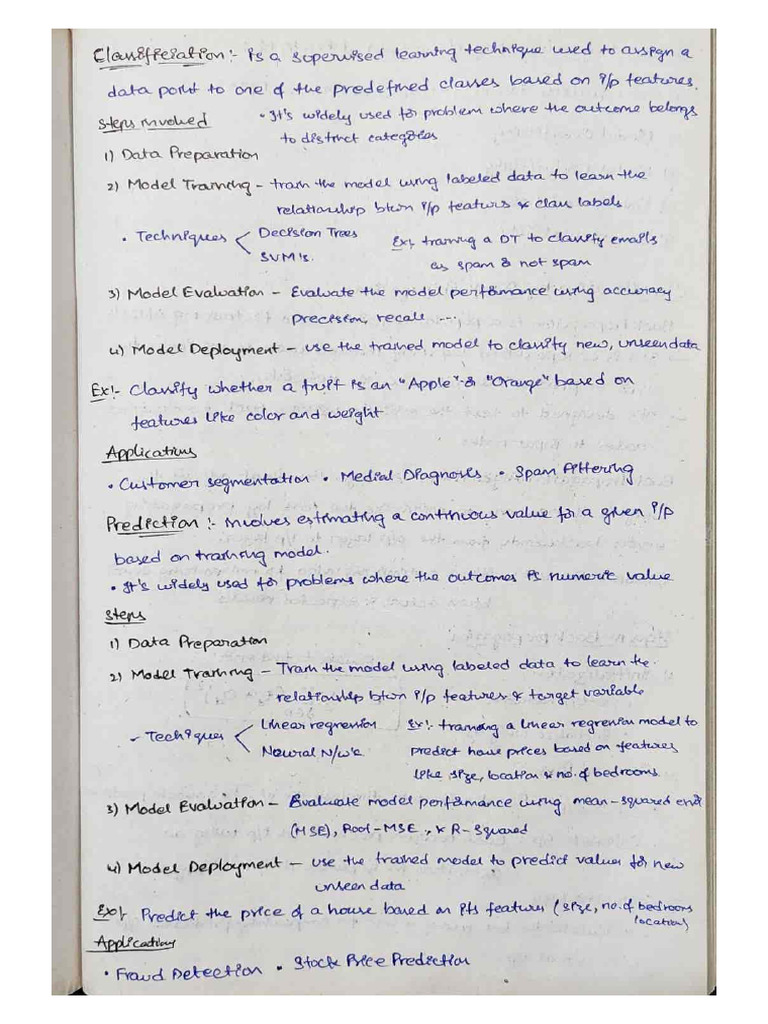 Classificiation :- is a supervised learning technique used to assign a
data point to one of the predefined classes based on i/p features.
Steps involved
• It's widely used for problem where the outcome belongs
to distinct categories
1) Data Preparation
2) Model Training - train the model using labeled data to learn the
relationship btwn i/p features & class labels
• Techniques < Decision Trees
SVM's.
Ex:- training a DT to classify emails
as spam & not spam
3) Model Evaluation - Evaluate the model performance using accuracy
precision, recall ----
4) Model Deployment - use the trained model to classify new, unseen data
Ex:- Classify whether a fruit is an "Apple" or "Orange" based on
features like color and weight
Applications
• Customer segmentation • Medial Diagnosis • Spam filtering
Prediction :- involves estimating a continuous value for a given i/p
based on training model.
• It's widely used for problems where the outcomes is numeric value
Steps
1) Data Preparation
2) Model Training - Train the model using labeled data to learn the
relationship btwn i/p features & target variable
- Techiques < Linear regression
Neural N/w's
Ex:- training a linear regression model to
predict house prices based on features
like size, location & no. of bedrooms
3) Model Evaluation - Evaluate model performance using mean-squared
(MSE), Root-MSE, & R-squared
4) Model Deployment - use the trained model to predict values for new
unseen data
Ex:- Predict the price of a house based on its features (size, no. of bedrooms
location)
Applications
• Fraud Detection • Stock Price Prediction